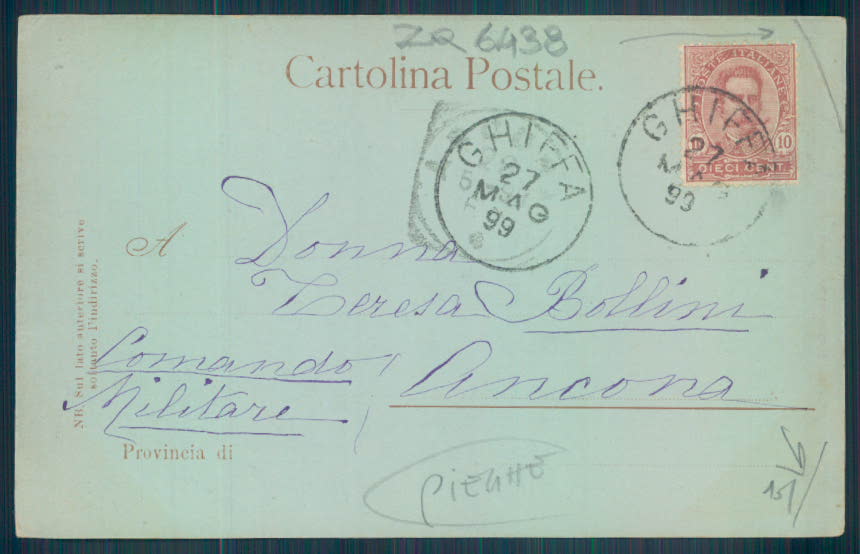 ZQ 6438
Cartolina Postale.
POSTE ITALIANE
10
DIECI CENT.
GHIFFA
27
MAG
99
GHIFFA
27
MAG
99
A Donna
Teresa Bollini
Comando
Militare
Ancona
Provincia di
NB. Sul lato anteriore si scrive
soltanto l'indirizzo.
PIEGHE